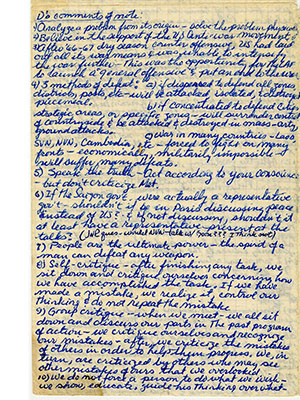 D's comments of note:
1) Analyze problem from its origin - solve the problem physically
2) Believe in the support of the US Anti-war movement
3) After 66-67 dry season counter offensive, US had laid
out all its war means & was unable to intensify
the war further - This was the opportunity for them
to launch a general offensive & put an end to the war
4) 3 methods of defeat: a) if dispersed to defend all zones,
districts, posts, etc - will be attacked, isolated & destroyed
piecemeal. b) if concentrated to defend cities,
strategic areas, or specific zones - will surrender control
of countryside & be attacked & destroyed in mass arty
ground attacks. c) war in many countries - Laos,
SVN, NVN, Cambodia, etc - forced to fight on many
fronts - economically & militarily impossible -
will suffer many defeats.
5) Speak the truth - Act according to your conscience
- but don't criticize Met.
6) If the Saigon gov't were actually a representative
gov't - shouldn't it be in Paris discussing peace
instead of US? & if not discussing, shouldn't it
at least have a representative present at the
talks?
7) People are the ultimate power - the spirit of a
man can defeat any weapon.
8) Self-critique - after finishing any task, we
sit down and critique ourselves concerning how
we have accomplished the task. If we have
made a mistake, we realize it, control our
thinking & do not repeat the mistake.
9) Group critique - when we meet - we all sit
down and discuss our parts in the past program
of action - we critique ourselves and recognize
our mistakes - after we critique the mistakes
of others in order to help them progress. We, in
turn, are critiqued by others who may see
other mistakes of ours that we overlooked
10) We do not force a person to do what we wish -
we show, educate, guide his thinking over what